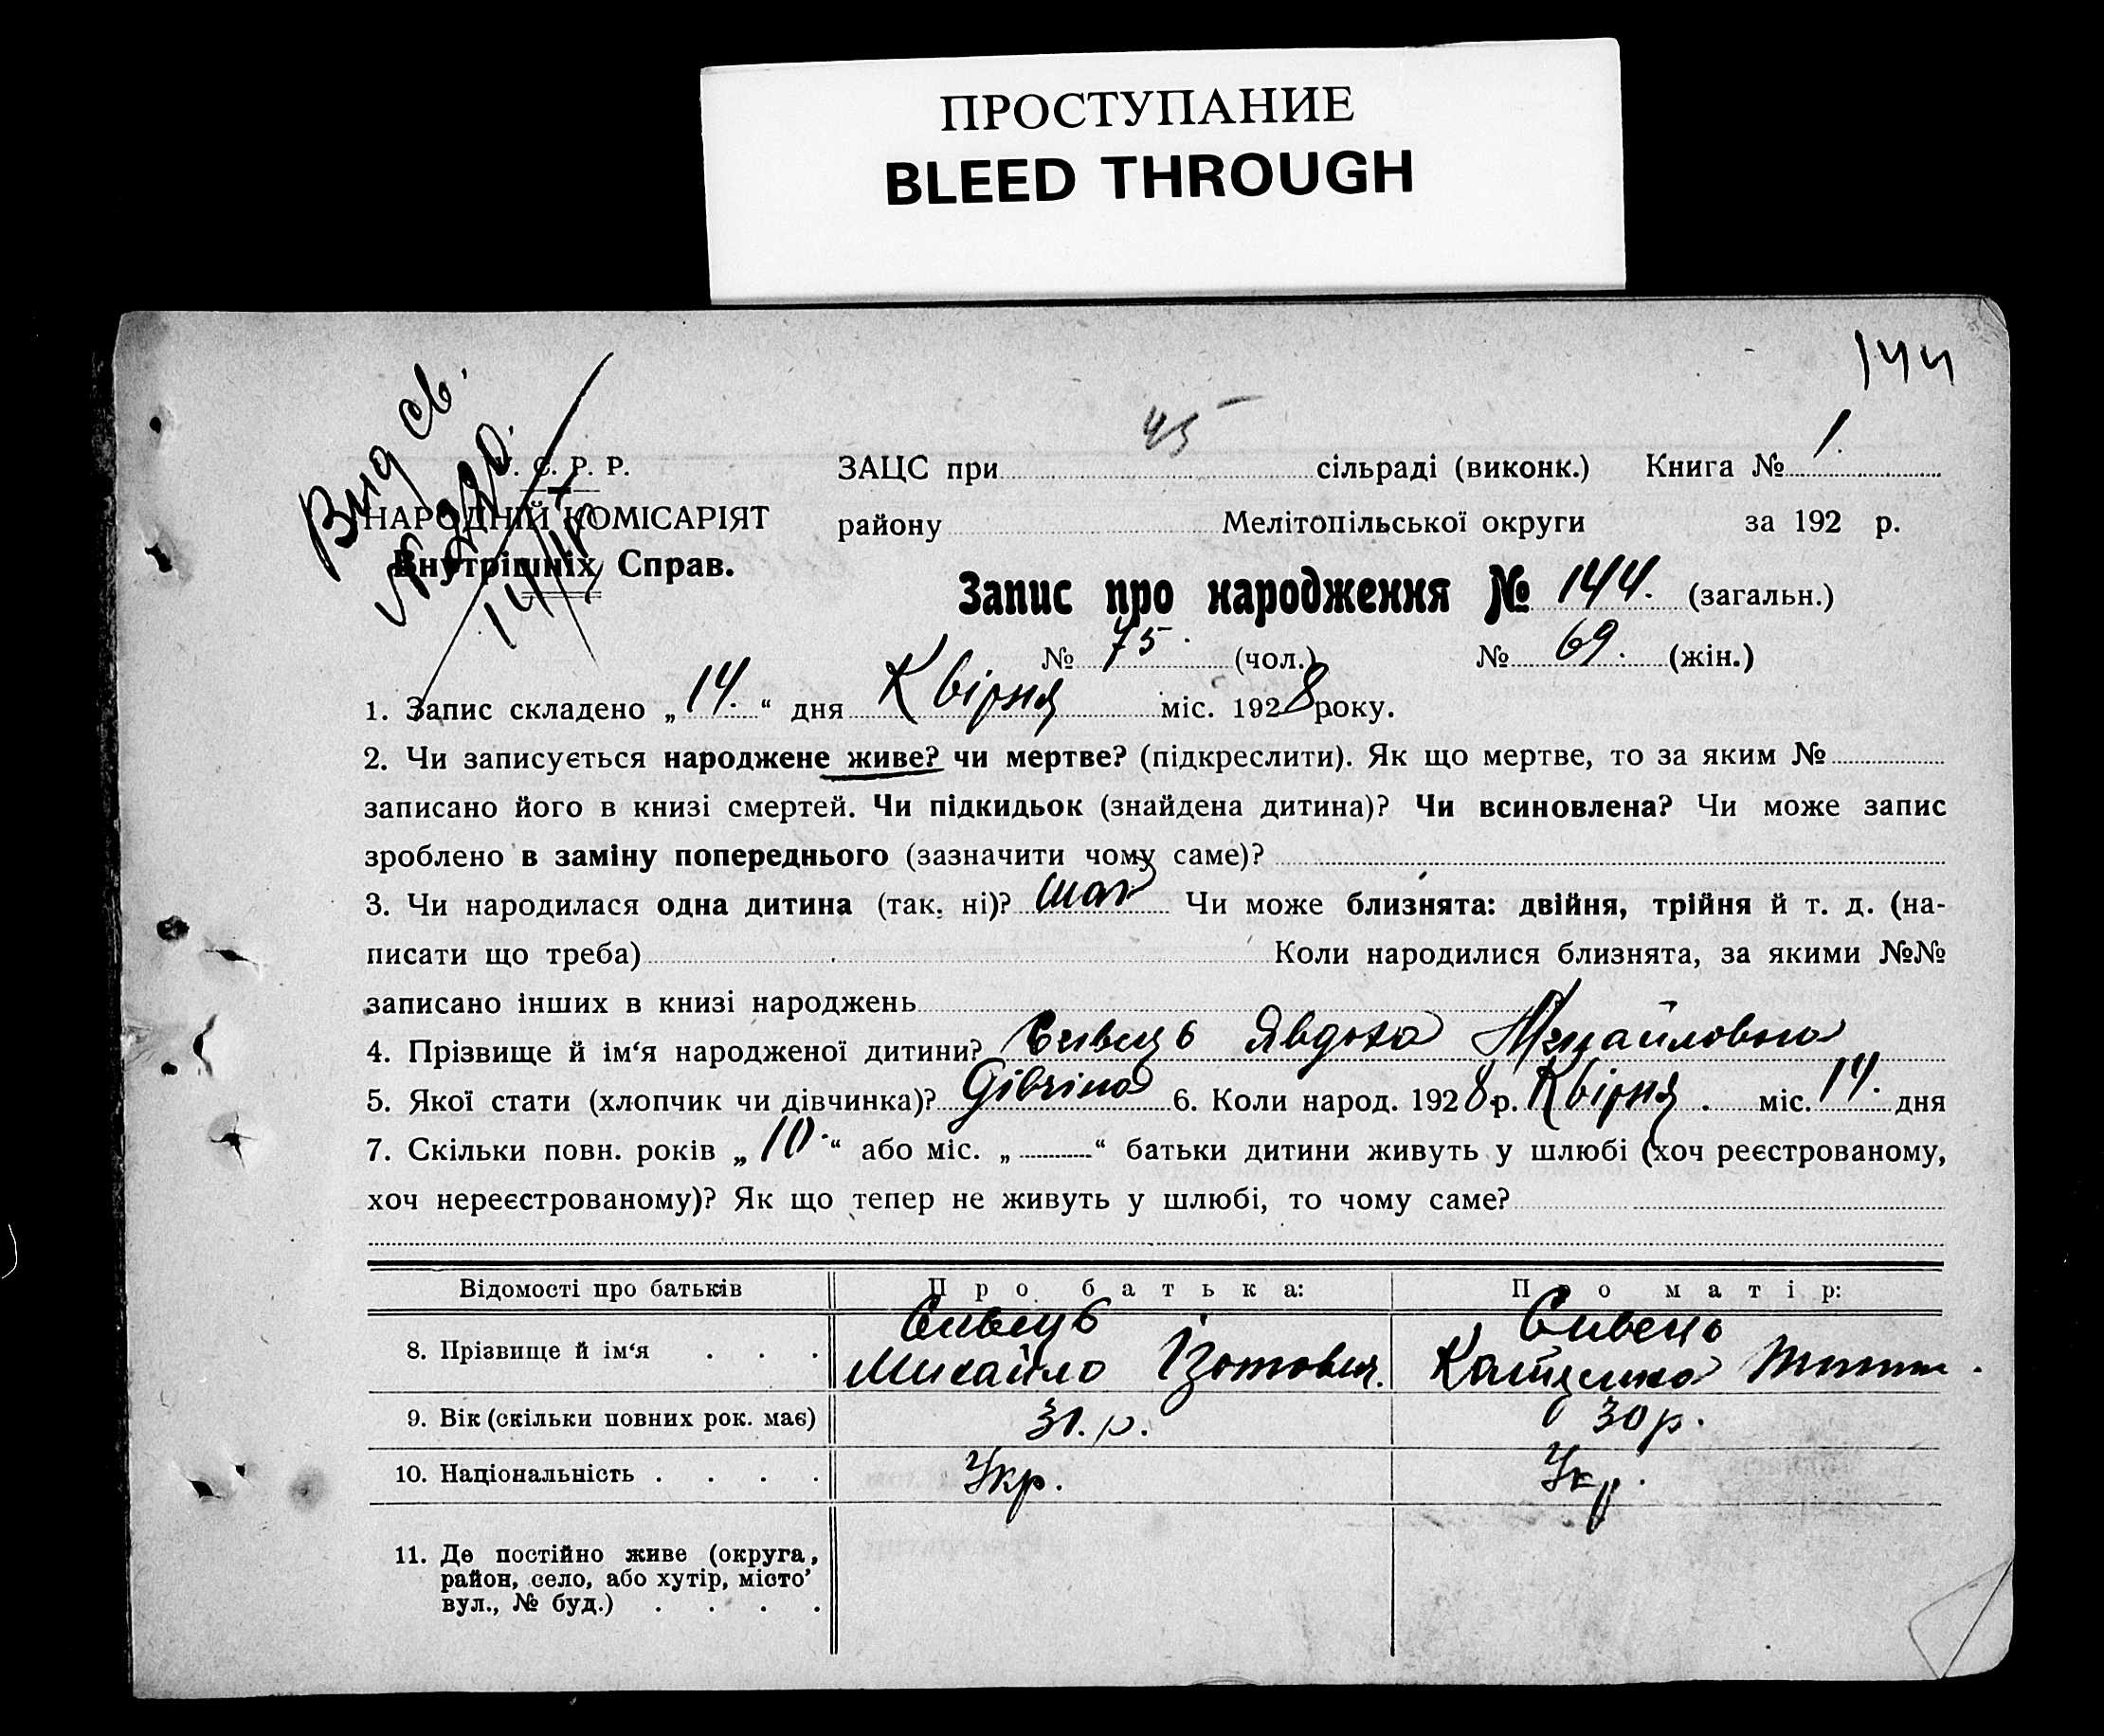 ПРОСТУПАНИЕ
BLEED THROUGH
144
45
Вид св.
№ 220.
С. Р. Р.
НАРОДНІЙ КОМІСАРІЯТ
Внутрішніх Справ.
ЗАЦС при сільраді (виконк.) Книга № 1.
району Мелітопільської округи за 192 р.
Запис про народження № 144. (загальн.)
№ 75. (чол.) № 69. (жін.)
1. Запис складено „14.“ дня Квірня міс. 1928 року.
2. Чи записується народжене живе? чи мертве? (підкреслити). Як що мертве, то за яким №
записано його в книзі смертей. Чи підкидьок (знайдена дитина)? Чи всиновлена? Чи може запис
зроблено в заміну попереднього (зазначити чому саме)?
3. Чи народилася одна дитина (так, ні)? Чи може близнята: двійня, трійня й т. д. (на-
писати що треба) Коли народилися близнята, за якими №№
записано інших в книзі народжень
4. Прізвище й ім‘я народженої дитини? Сивець Явдоха Михайловна
5. Якої стати (хлопчик чи дівчинка)? Дівчіна 6. Коли народ. 1928 р. Квірня міс. 14. дня
7. Скільки повн. років „10.“ або міс. „ “ батьки дитини живуть у шлюбі (хоч реєстрованому,
хоч нереєстрованому)? Як що тепер не живуть у шлюбі, то чому саме?
Відомості про батьків Про батька: Про матір:
Сивець Сивець
8. Прізвище й ім‘я . . . Михайло Ізотович.
9. Вік (скільки повних рок. має) 31. р. 30 р.
10. Національність . . . . Укр. Укр.
11. Де постійно живе (округа,
район, село, або хутір, місто’
вул., № буд.) . . . .